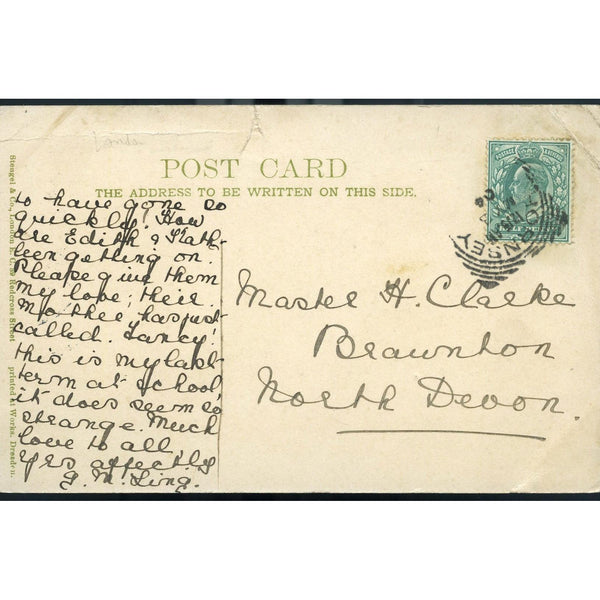 POST CARD
THE ADDRESS TO BE WRITTEN ON THIS SIDE.
to have gone so
quickly! How
are Edith & Kath-
leen getting on.
Please give them
my love; their
mother has just
called. Fancy!
this is my last
term at school,
it does seem so
strange. Much
love to all,
Yrs affectly
G. M. Ling.
Master H. Clarke
Braunton
North Devon.
POSTAGE REVENUE
HALF PENNY
RNSEY
Stengel & Co., London E. C. 39 Redcross Street printed at Works, Dresden.
London